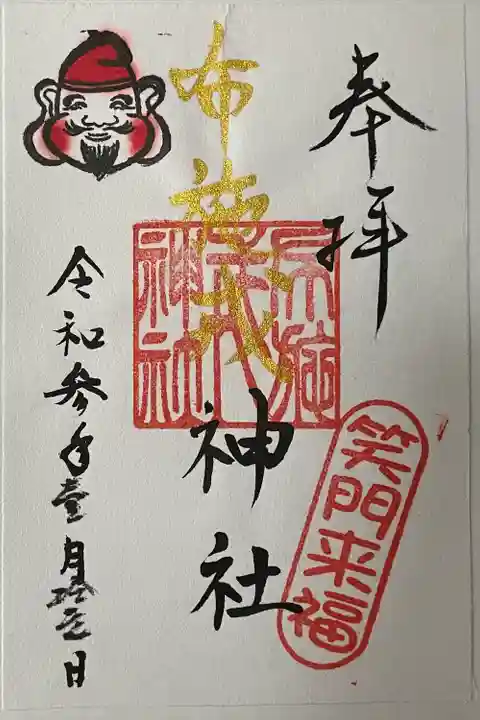 奉拝
布施戎神社
布施
戎
神社
笑門来福
令和参年壹月日